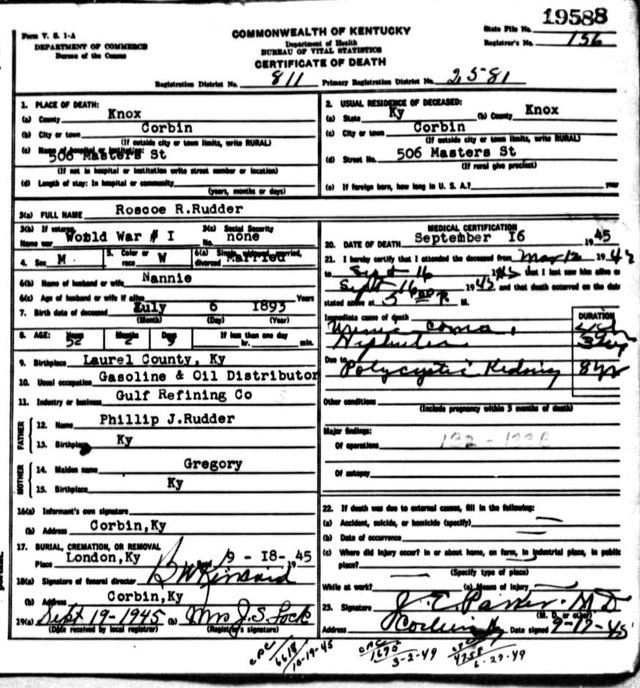 19588
Form V. S. 1-A
DEPARTMENT OF COMMERCE
Bureau of the Census
COMMONWEALTH OF KENTUCKY
Department of Health
BUREAU OF VITAL STATISTICS
CERTIFICATE OF DEATH
State File No.
Registrar's No. 156
Registration District No. 811 Primary Registration District No. 2581
1. PLACE OF DEATH:
(a) County Knox
(b) City or town Corbin
(If outside city or town limits, write RURAL)
(c) Name of hospital or institution:
506 Masters St
(If not in hospital or institution write street number or location)
(d) Length of stay: In hospital or community
(years, months or days)
2. USUAL RESIDENCE OF DECEASED:
(a) State Ky (b) County Knox
(c) City or town Corbin
(If outside city or town limits, write RURAL)
(d) Street No. 506 Masters St
(If rural give precinct)
(e) If foreign born, how long in U. S. A.? years
3(a) FULL NAME Roscoe R.Rudder
3(b) If veteran, Name war World War # I
3(c) Social Security No. none
4. Sex M 5. Color or race W 6(a) Single, widowed, married, divorced Married
6(b) Name of husband or wife Nannie
6(c) Age of husband or wife if alive Years
7. Birth date of deceased July 6 1893
(Month) (Day) (Year)
8. AGE: Years 52 Months 2 Days If less than one day
hr. min.
9. Birthplace Laurel County, Ky
10. Usual occupation Gasoline & Oil Distributor
11. Industry or business Gulf Refining Co
FATHER
12. Name Phillip J.Rudder
13. Birthplace Ky
MOTHER
14. Maiden name Gregory
15. Birthplace Ky
16(a) Informant's own signature
(b) Address Corbin,Ky
17. BURIAL, CREMATION, OR REMOVAL
Place London,Ky 9 - 18- 1945
18(a) Signature of funeral director
(b) Address Corbin,Ky
19(a) Sept 19-1945 (b) Mrs J.S. Lock
(Date received by local registrar) (Registrar's signature)
MEDICAL CERTIFICATION
20. DATE OF DEATH September 16 1945
21. I hereby certify that I attended the deceased from
to Sept 16 that I last saw him alive on
Sept 16 and that death occurred on the date
stated above at 5 P. M.
Immediate cause of death DURATION
Uremic coma
Nephritis
Due to Polycystic Kidney 8 yr
Other conditions
(Include pregnancy within 3 months of death)
Major findings:
Of operations
Of autopsy
22. If death was due to external causes, fill in the following:
(a) Accident, suicide, or homicide (specify)
(b) Date of occurrence
(c) Where did injury occur? In or about home, on farm, in industrial place, in public
place?
(Specify type of place)
While at work? (e) Means of injury
23. Signature J. E. Parker M.D
(M. D. or other)
Address Corbin Date signed 9-17-45
CPC 6618 10-19-45
CPC 1695 3-2-49
CPC 4758 6-27-49